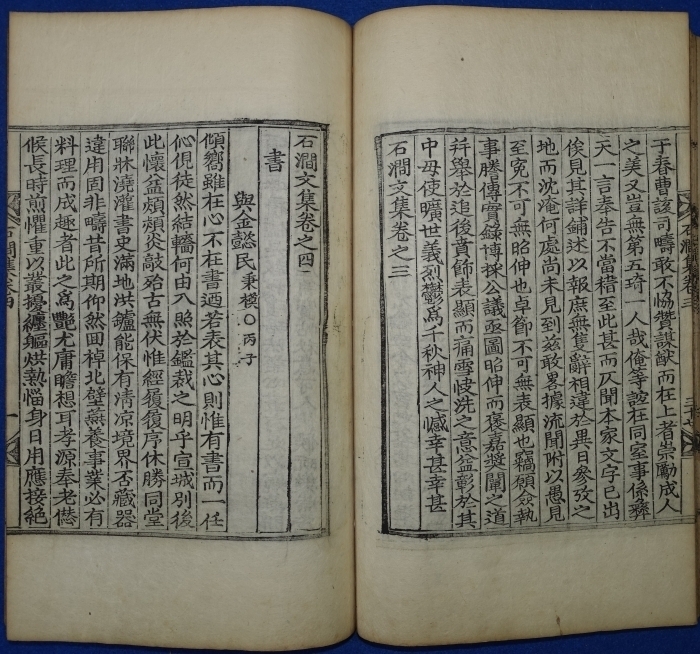 于春曹該司疇敢不恊贊謀猷而在上者崇勵成人
之美又豈無第五琦一人哉俺等誼在同室事係彝
天一言奉告不當稽至此甚而仄聞本家文字已出
俟見其詳鋪述以報庶無隻辭相違於異日參攷之
地而沈淹何處尚未見到玆敢畧據流聞附以愚見
至寃不可無昭伸也卓節不可無表顯也竊願僉執
事騰傳實錄博採公議亟圖昭伸而褒嘉奬闡之道
幷舉於追後賁飾表顯而痛雪快洗之意益彰於其
中毋使曠世義烈鬱爲千秋神人之憾幸甚幸甚
石澗文集卷之三
石澗文集卷之四
書
與金懿民秉模○丙子
傾嚮雖在心不在書迺若表其心則惟有書而一任
伈俔徒然結轖何由入照於鑑裁之明乎宣城別後
此懷益頻頻炎敲殆古無伏惟經履履序休勝同堂
聯牀澆灌書史滿地洪鑪能保有清凉境界否藏器
違用固非疇昔所期仰然回棹北壁蕪養事業必有
料理而成趣者此之爲艷尤庸瞻想耳孝源奉老僁
候長時煎懼重以叢擾纏軀烘熱惱身日用應接絶
石澗集卷四 一